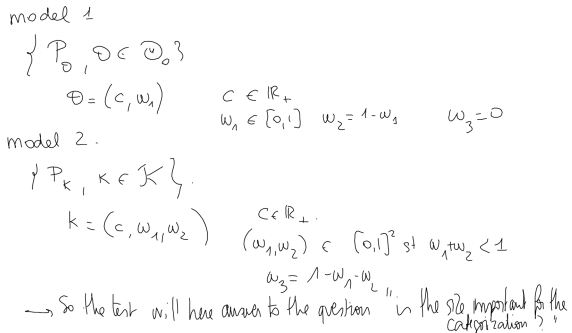 model 1
{ P_θ, θ ∈ Θ_0 }
θ = (c, w_1) c ∈ ℝ_+
w_1 ∈ [0,1] w_2 = 1-w_1 w_3 = 0
model 2.
{ P_K, K ∈ 𝒦 }.
K = (c, w_1, w_2) c ∈ ℝ_+.
(w_1, w_2) ∈ [0,1]^2 st w_1+w_2 < 1
w_3 = 1-w_1-w_2
→ So the test will here answer to the question "is the size important for the
categorization ? "